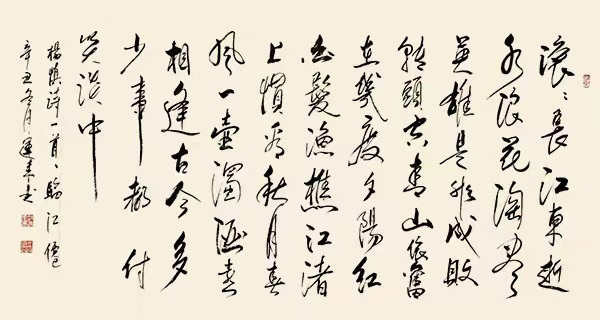 滚〻長江東逝
水浪花淘盡
英雄是非成敗
轉頭空青山依舊
在幾度夕陽紅
白髮漁樵江渚
上慣看秋月春
風一壺濁酒喜
相逢古今多
少事都付
笑談中
楊慎詩一首、臨江僊
辛丑冬月運來书